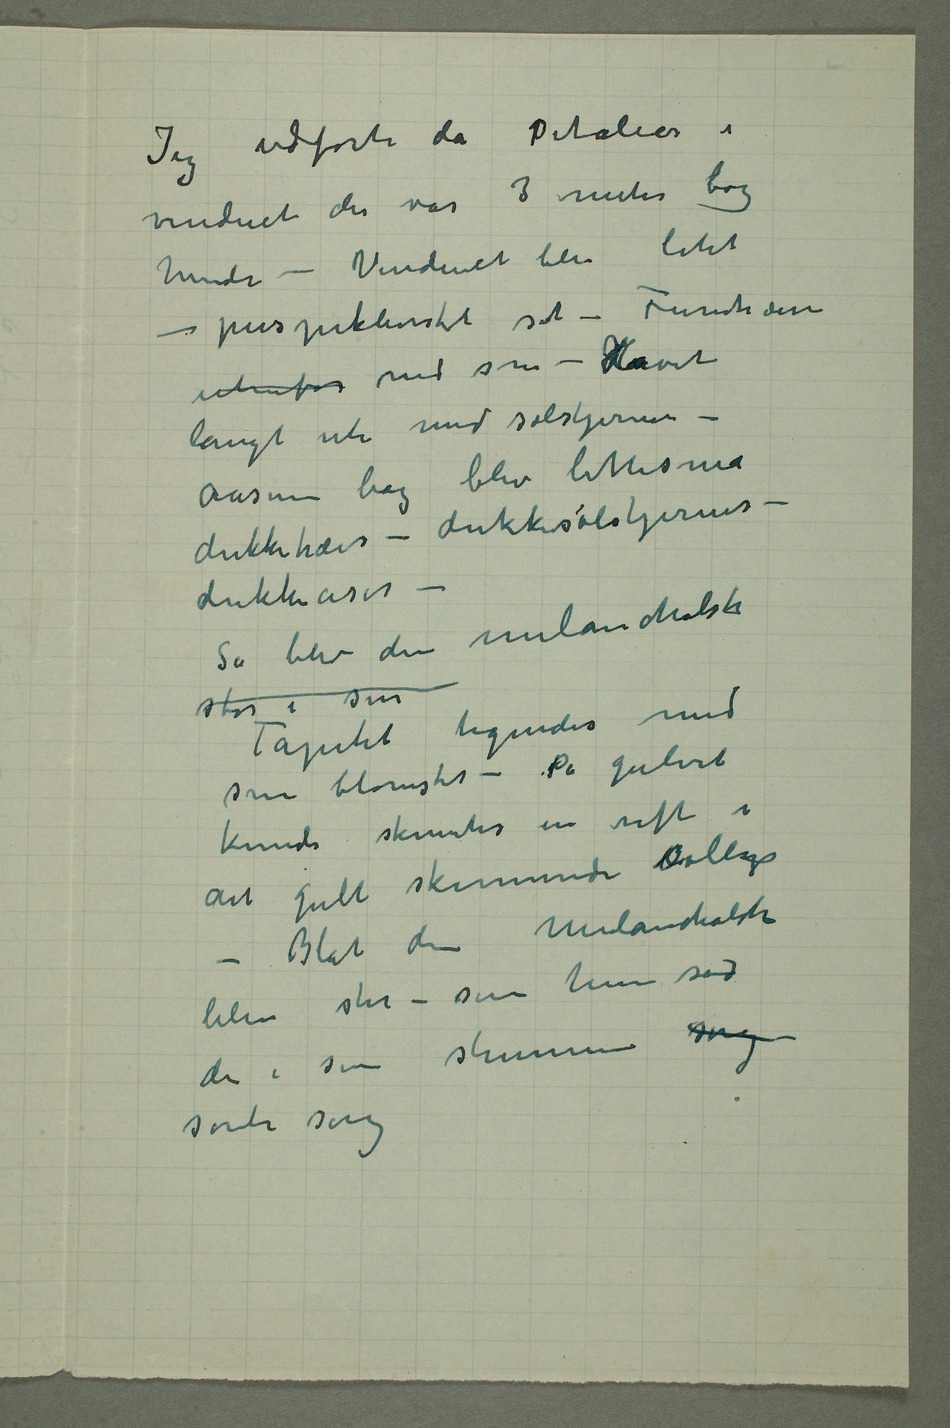 Jeg udførte da Detalier i
vinduet der var 3 meter bag
hende – Vinduet blev litet
– perspektivisket set – Furutræerne
udenfor med sne – Havet
langt ute med solstjernen –
aasene bag blev bittesmå
dukketrær – dukkesolstjerner –
dukkeåser –
Så blev den melancholske
stor i sin
Tapetet tegnedes med
sine blomster – På gulvet
kunde skimtes en rift i
det gult skinnende
– Blot den Melancholske
blev stor – som hun sad
der i sin stumme sorg
sorte sorg